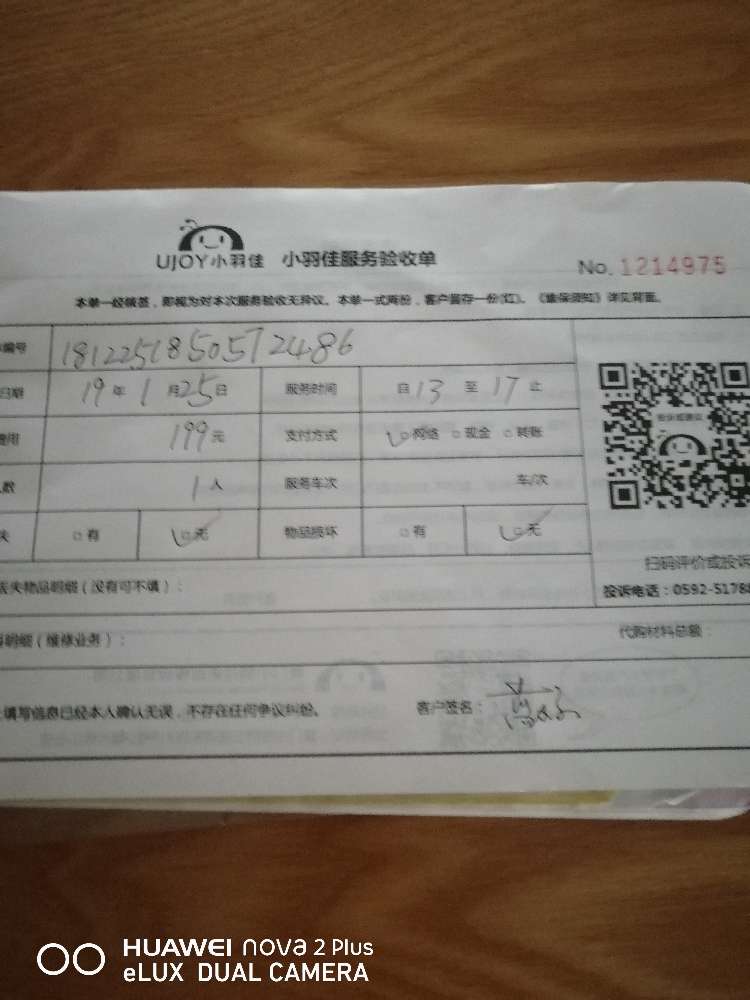 UJOY小羽佳 小羽佳服务验收单 No. 1214975
本单一经核签，即视为对本次服务验收无异议。本单一式两份，客户留存一份(红)。《维保须知》详见背面。
编号 1812251850572486
日期 19年1月25日 服务时间 自13至17止
费用 199元 支付方式 网络 现金 转账
数 1人 服务车次 车/次
失 有 无 物品损坏 有 无
扫码评价或投诉
丢失物品明细（没有可不填）： 投诉电话：0592-5178
明细（维修业务）： 代购材料总额：
填写信息已经本人确认无误，不存在任何争议纠纷。 客户签名：
HUAWEI nova 2 Plus
eLUX DUAL CAMERA